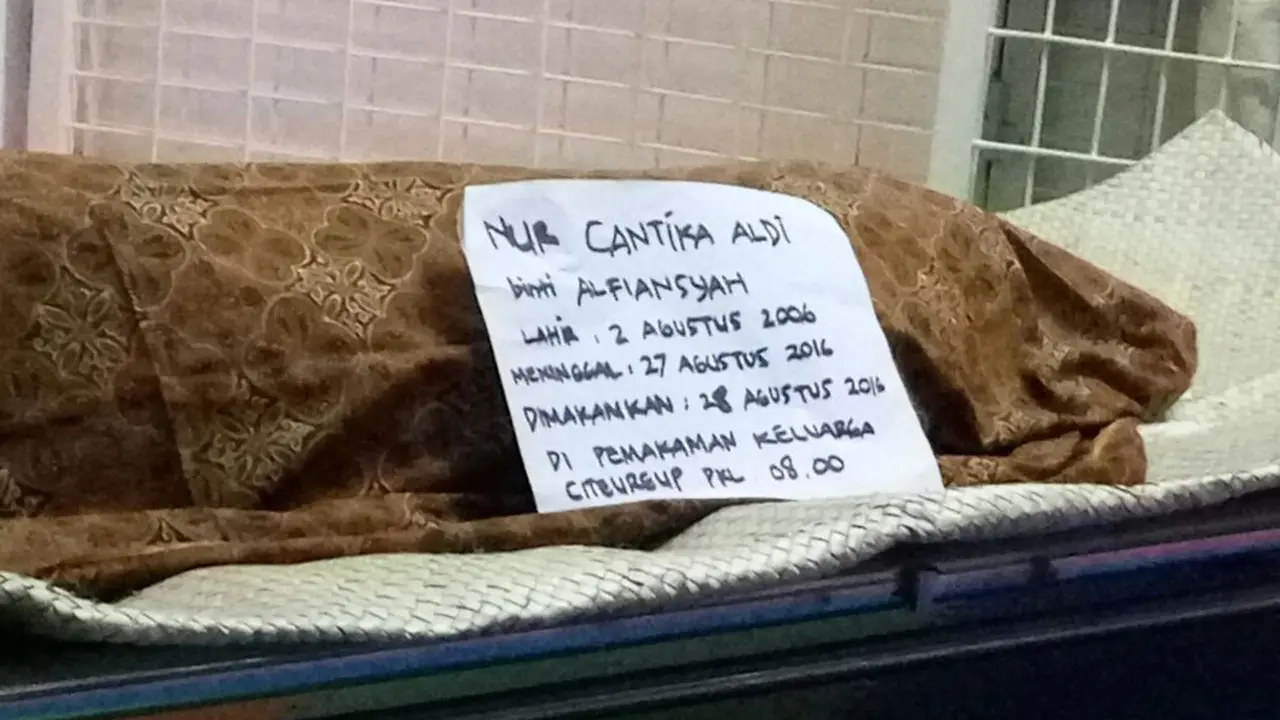 NUR CANTIKA ALDI
binti ALFIANSYAH
LAHIR : 2 AGUSTUS 2006
MENINGGAL : 27 AGUSTUS 2016
DIMAKANKAN : 28 AGUSTUS 2016
DI PEMAKAMAN KELUARGA
CITEUREUP PKL 08.00